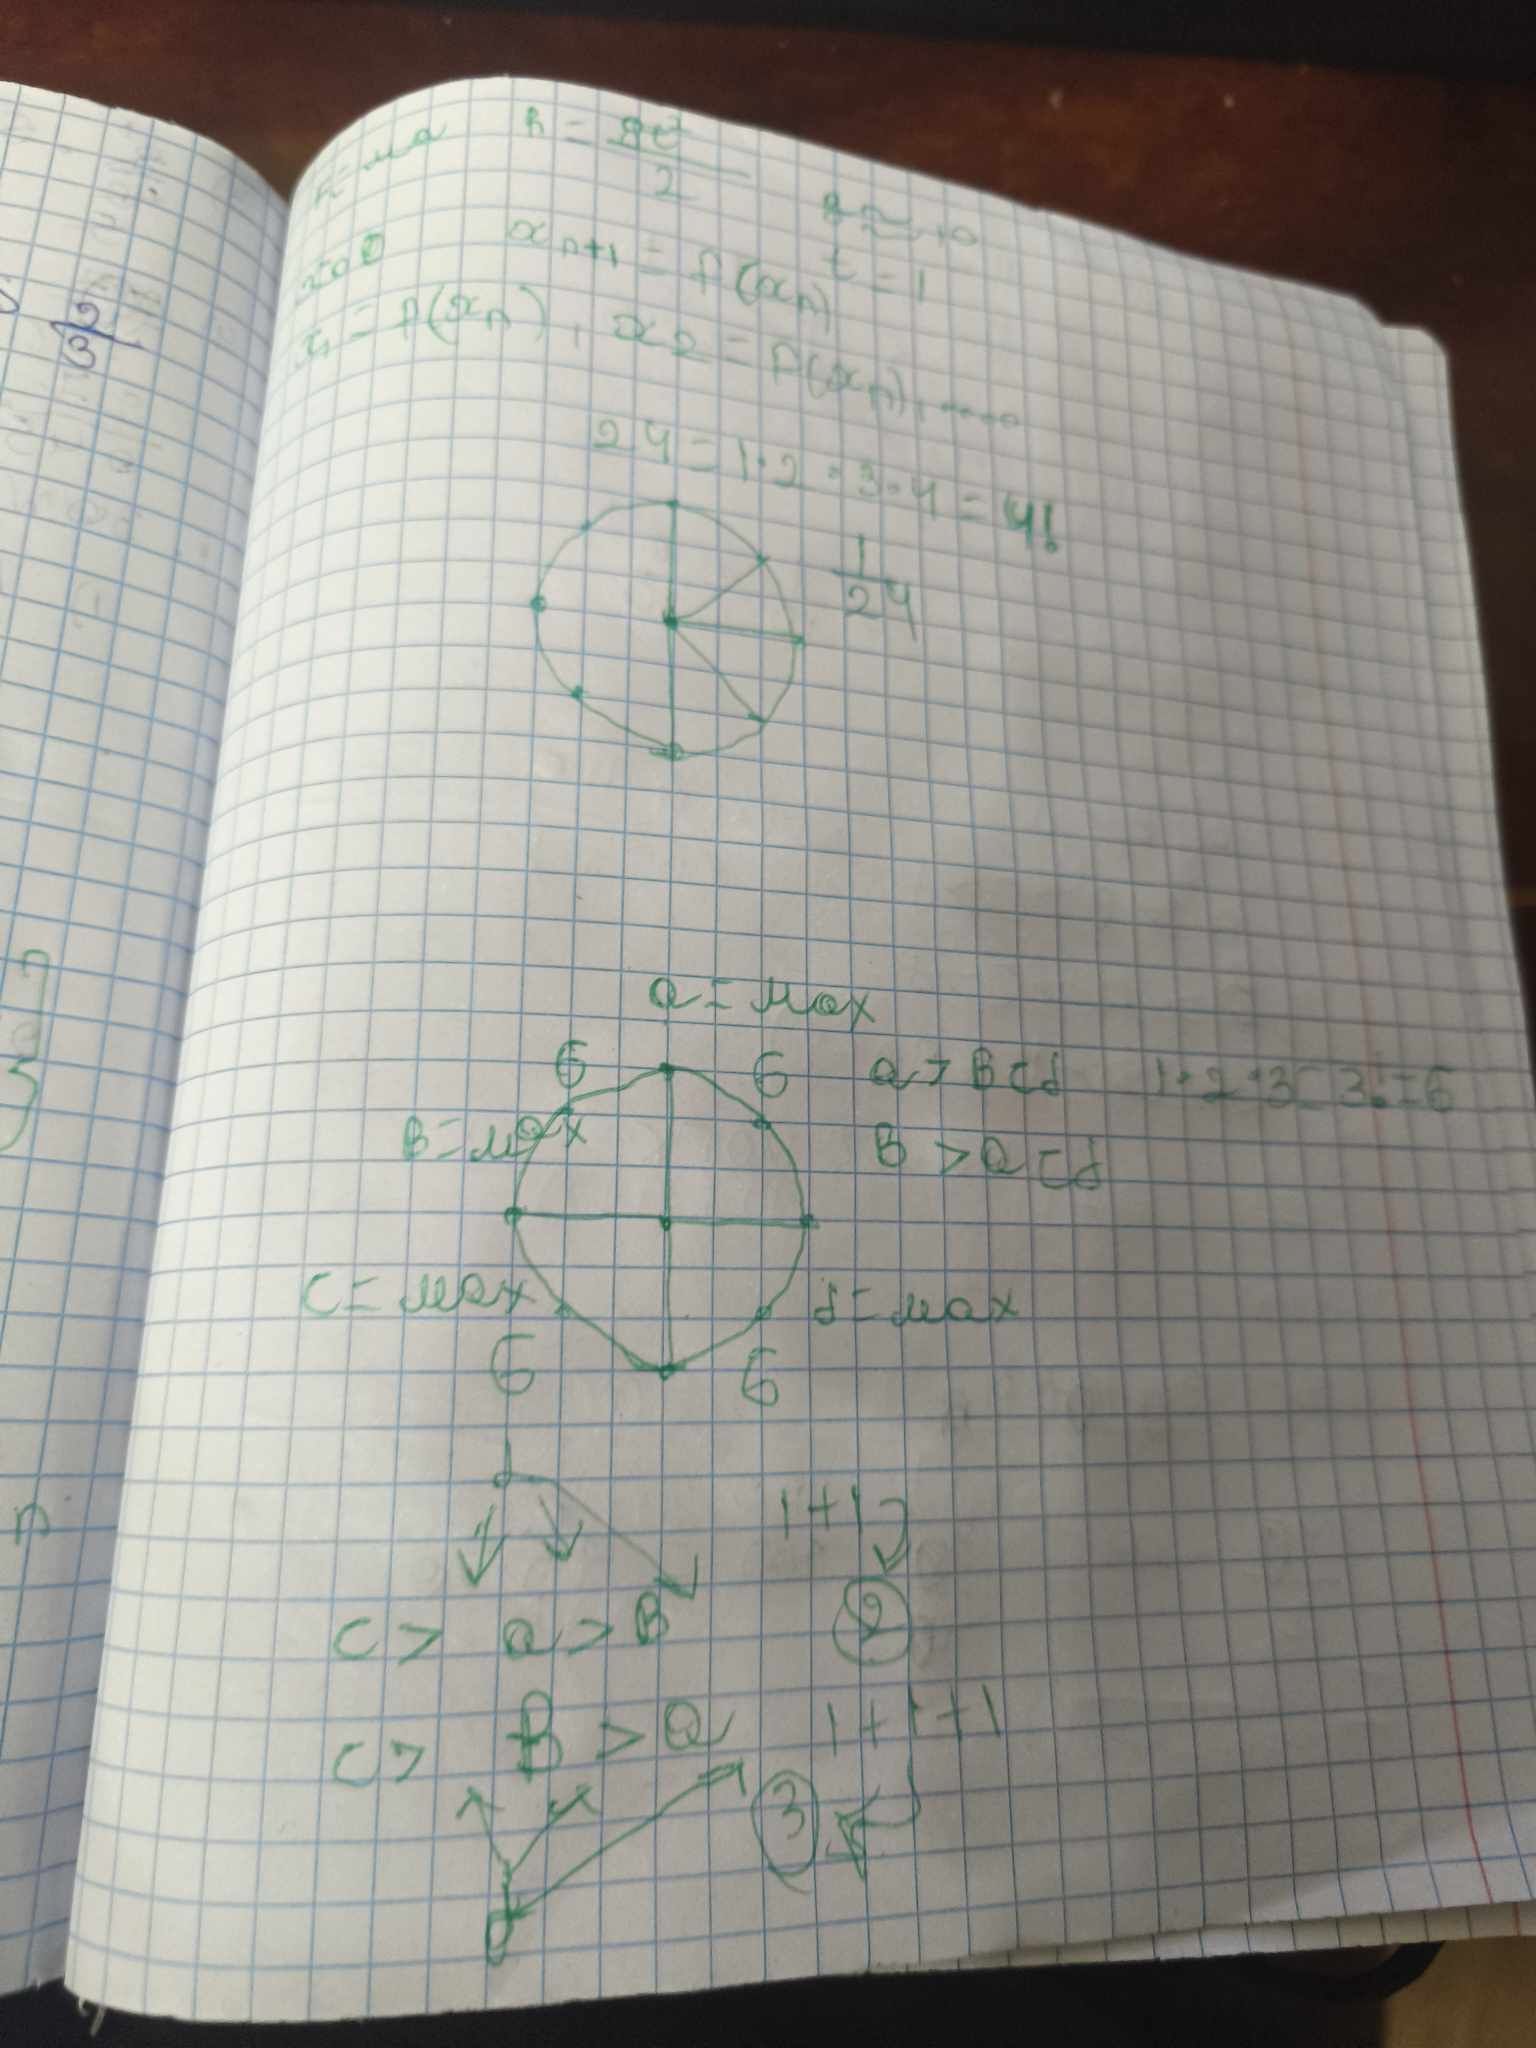 F = ma h = gt²/2
g ≈ 10
t = 1
x_{n+1} = f(x_n)
x_1 = f(x_n), x_2 = f(x_n), ....
24 = 1·2·3·4 = 4!
1/24
a = max
6 6 a > B c d 1·2·3 = 3! = 6
B = max B > a c d
c = max d = max
6 6
d 1+1
c > a > B 2
c > B > a 1+1+1
3
D
2/3
n